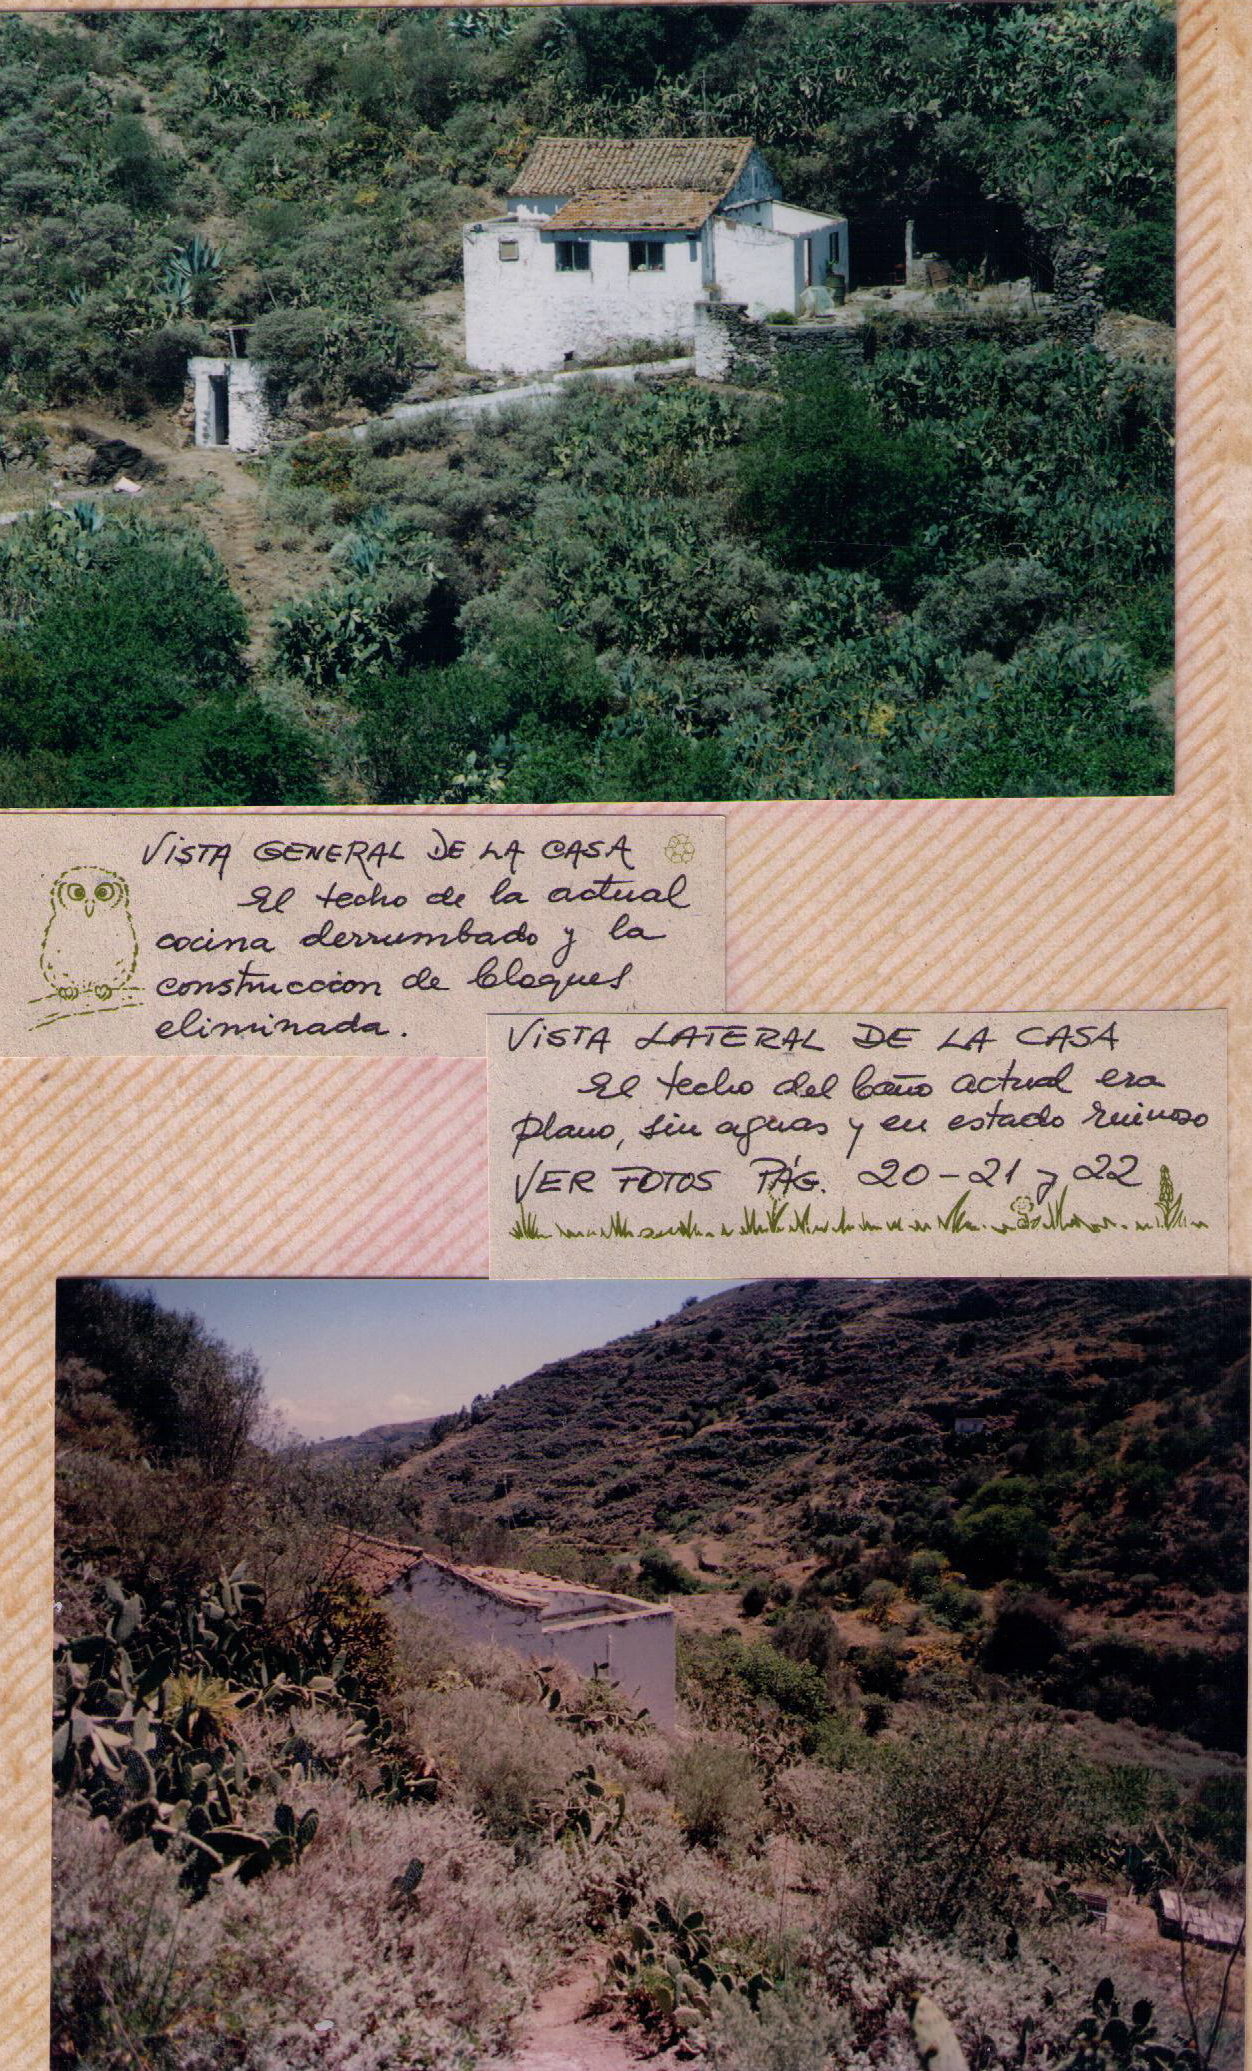 VISTA GENERAL DE LA CASA
El techo de la actual
cocina derrumbado y la
construccion de bloques
eliminada.
VISTA LATERAL DE LA CASA
El techo del baño actual era
plano, sin aguas y en estado ruinoso
VER FOTOS PÁG. 20-21 y 22